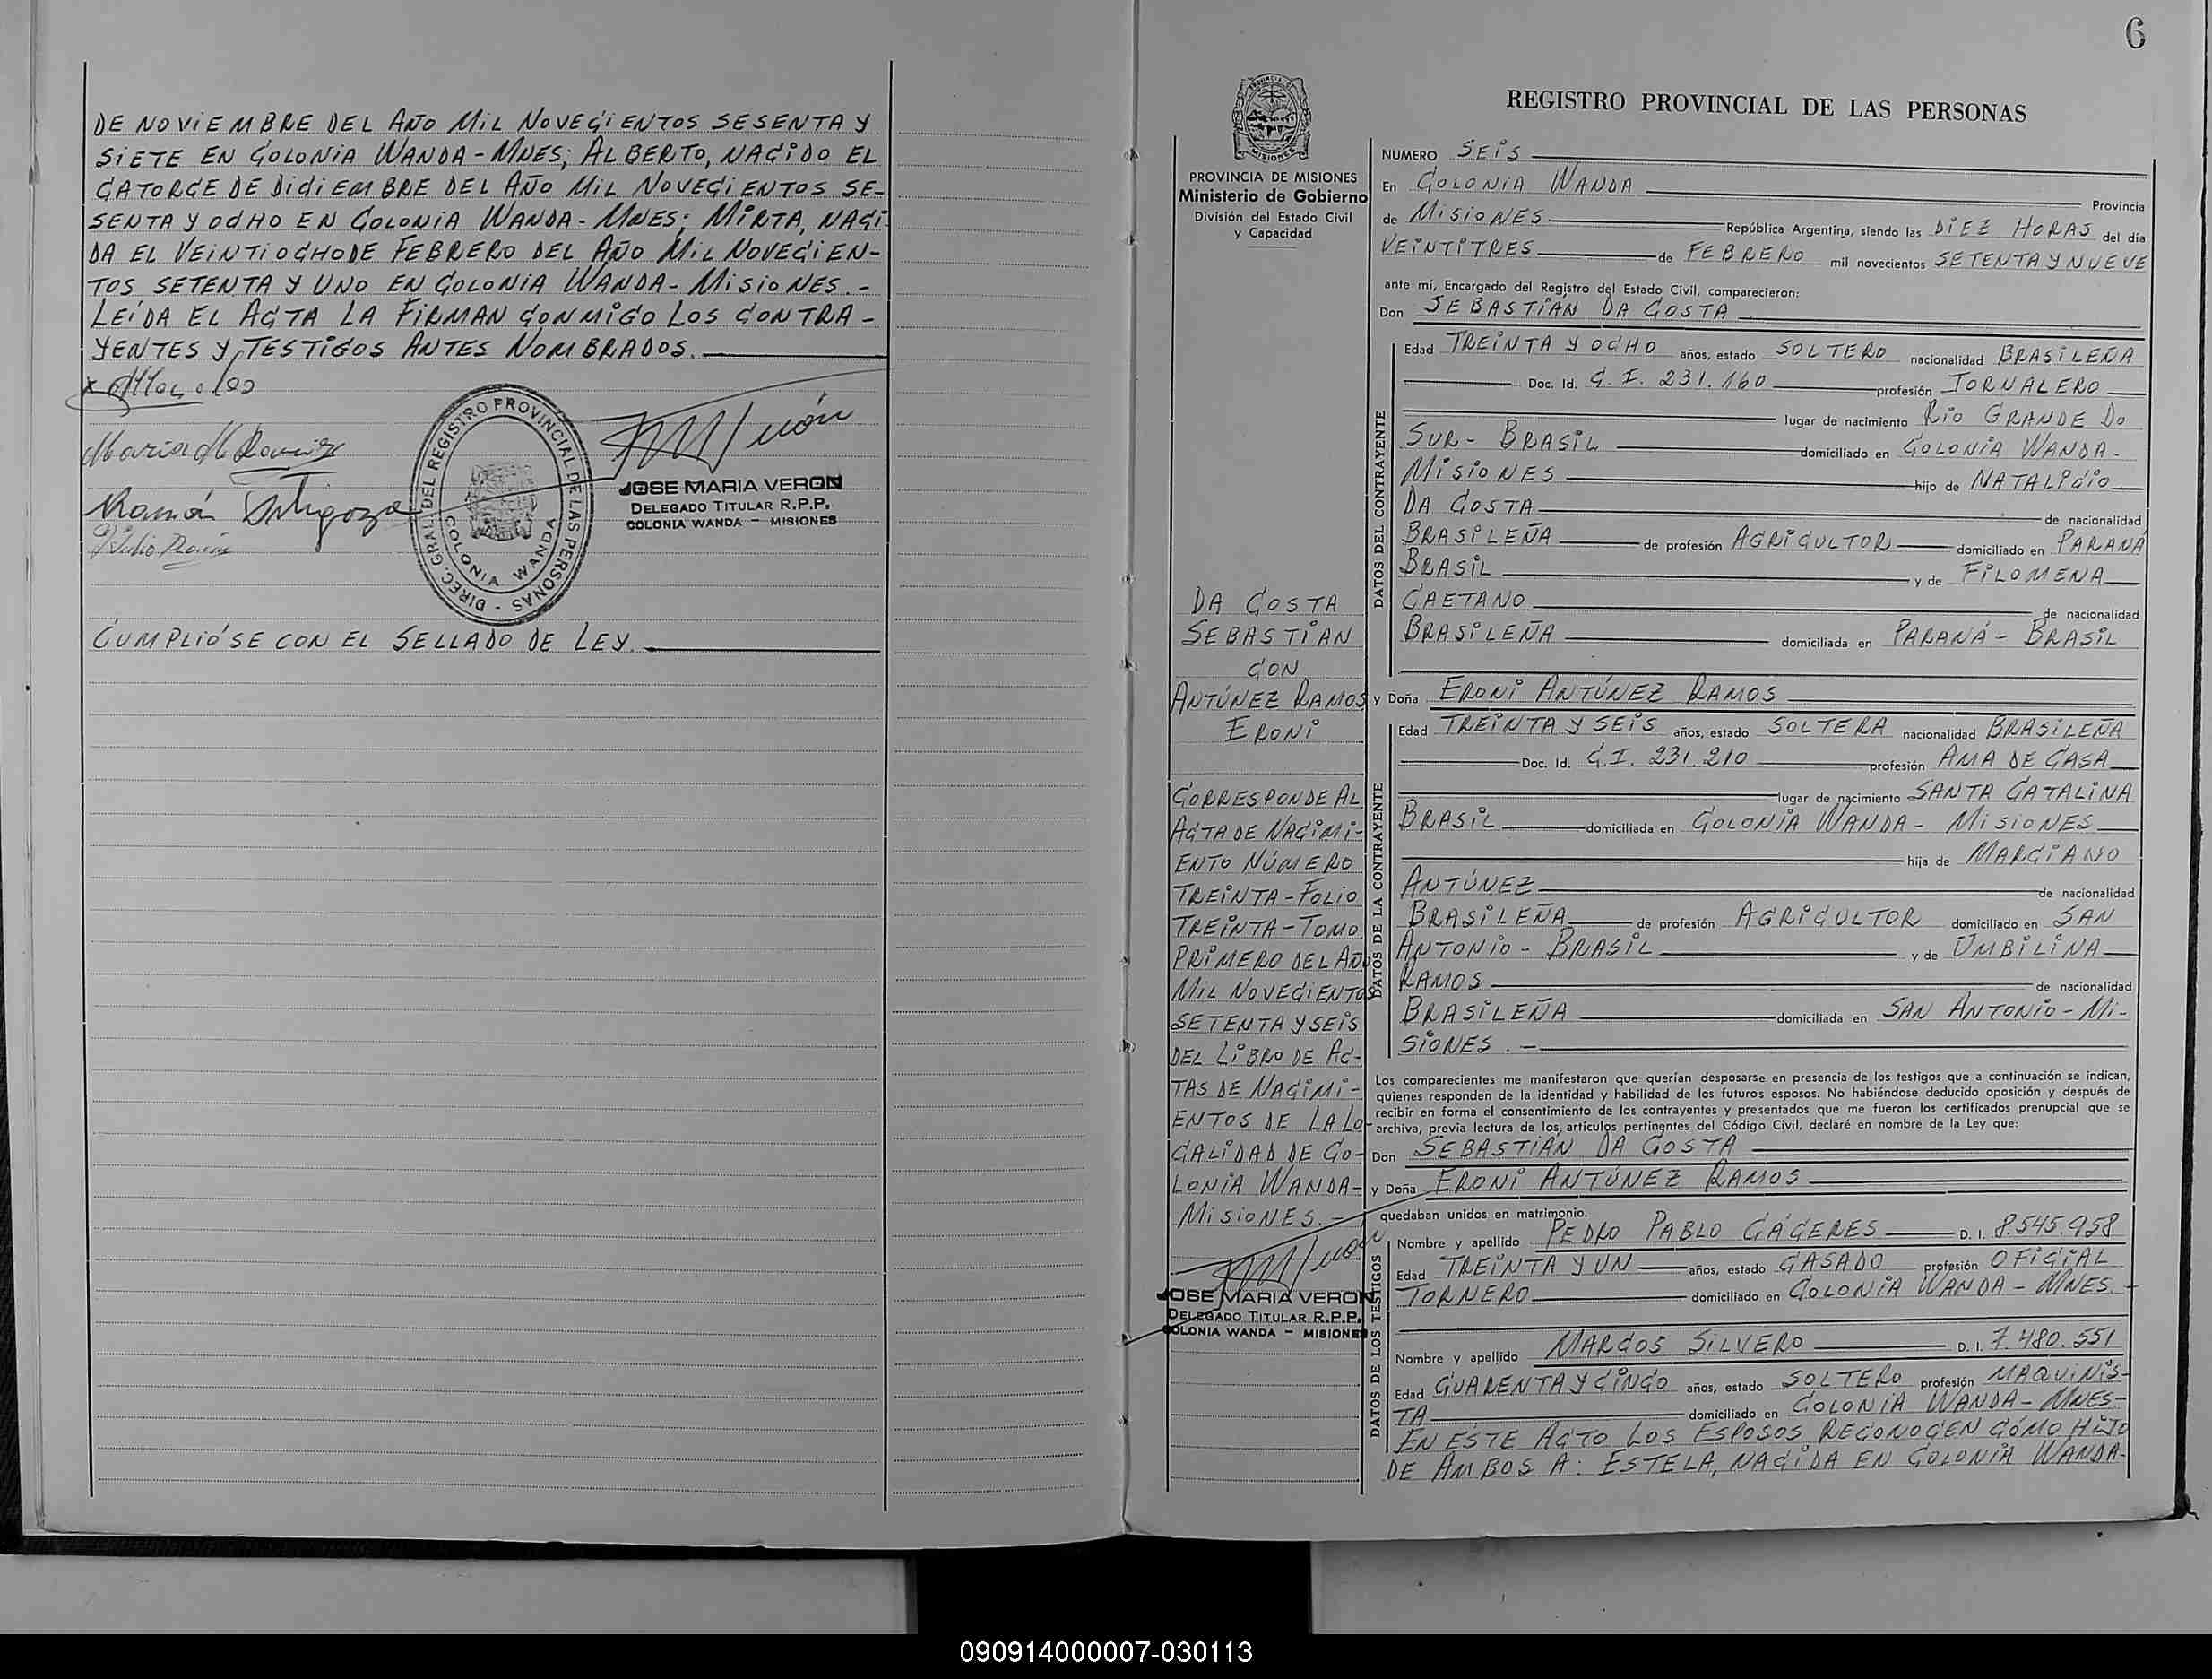 DE NOVIEMBRE DEL AÑO MIL NOVECIENTOS SESENTA Y
SIETE EN COLONIA WANDA-MNES; ALBERTO, NACIDO EL
CATORCE DE DICIEMBRE DEL AÑO MIL NOVECIENTOS SE-
SENTA Y OCHO EN COLONIA WANDA-MNES; MIRTA, NACI-
DA EL VEINTIOCHO DE FEBRERO DEL AÑO MIL NOVECIEN-
TOS SETENTA Y UNO EN COLONIA WANDA-MISIONES.-
LEÍDA EL ACTA LA FIRMAN CONMIGO LOS CONTRA-
YENTES Y TESTIGOS ANTES NOMBRADOS.
Ramón
DIREC. GRAL. DEL REGISTRO PROVINCIAL DE LAS PERSONAS -
COLONIA WANDA
JOSE MARIA VERON
DELEGADO TITULAR R.P.P.
COLONIA WANDA - MISIONES
CUMPLIÓSE CON EL SELLADO DE LEY.
6
MISIONES
PROVINCIA DE MISIONES
Ministerio de Gobierno
División del Estado Civil
y Capacidad
DA COSTA
SEBASTIAN
CON
ANTÚNEZ RAMOS
ERONI
CORRESPONDE AL
ACTA DE NACIMI-
ENTO NÚMERO
TREINTA-FOLIO
TREINTA-TOMO
PRIMERO DEL AÑO
MIL NOVECIENTOS
SETENTA Y SEIS
DEL LIBRO DE AC-
TAS DE NACIMI-
ENTOS DE LA LO-
CALIDAD DE CO-
LONIA WANDA-
MISIONES.-
JOSE MARIA VERON
DELEGADO TITULAR R.P.P.
COLONIA WANDA - MISIONES
REGISTRO PROVINCIAL DE LAS PERSONAS
NUMERO SEIS
En COLONIA WANDA Provincia
de MISIONES República Argentina, siendo las DIEZ HORAS del día
VEINTITRES de FEBRERO mil novecientos SETENTA Y NUEVE
ante mí, Encargado del Registro del Estado Civil, comparecieron:
Don SEBASTIÁN DA COSTA
DATOS DEL CONTRAYENTE
Edad TREINTA Y OCHO años, estado SOLTERO nacionalidad BRASILEÑA
Doc. Id. C.I. 231.160 profesión JORNALERO
lugar de nacimiento RIO GRANDE DO
SUR- BRASIL domiciliado en COLONIA WANDA-
MISIONES hijo de NATALICIO
DA COSTA de nacionalidad
BRASILEÑA de profesión AGRICULTOR domiciliado en PARANÁ
BRASIL y de FILOMENA
CAETANO de nacionalidad
BRASILEÑA domiciliada en PARANÁ- BRASIL
y Doña ERONI ANTÚNEZ RAMOS
DATOS DE LA CONTRAYENTE
Edad TREINTA Y SEIS años, estado SOLTERA nacionalidad BRASILEÑA
Doc. Id. C.I. 231.210 profesión AMA DE CASA
lugar de nacimiento SANTA CATALINA
BRASIL domiciliada en COLONIA WANDA- MISIONES
hija de MARCIANO
ANTÚNEZ de nacionalidad
BRASILEÑA de profesión AGRICULTOR domiciliado en SAN
ANTONIO- BRASIL y de UMBILINA
RAMOS de nacionalidad
BRASILEÑA domiciliada en SAN ANTONIO-MI-
SIONES.-
Los comparecientes me manifestaron que querían desposarse en presencia de los testigos que a continuación se indican,
quienes responden de la identidad y habilidad de los futuros esposos. No habiéndose deducido oposición y después de
recibir en forma el consentimiento de los contrayentes y presentados que me fueron los certificados prenupcial que se
archiva, previa lectura de los artículos pertinentes del Código Civil, declaré en nombre de la Ley que:
Don SEBASTIÁN DA COSTA
y Doña ERONI ANTÚNEZ RAMOS
quedaban unidos en matrimonio.
DATOS DE LOS TESTIGOS
Nombre y apellido PEDRO PABLO CÁCERES D. I. 8.545.958
Edad TREINTA Y UN años, estado CASADO profesión OFICIAL
TORNERO domiciliado en COLONIA WANDA-MNES.-
Nombre y apellido MARCOS SILVERO D. I. 7.480.551
Edad CUARENTA Y CINCO años, estado SOLTERO profesión MAQUINIS-
TA domiciliado en COLONIA WANDA-MNES.-
EN ESTE ACTO LOS ESPOSOS RECONOCEN CÓMO HIJO
DE AMBOS A: ESTELA, NACIDA EN COLONIA WANDA-
090914000007-030113